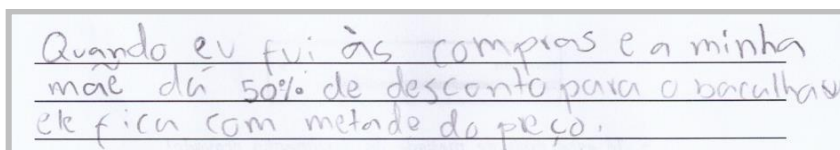 Quando eu fui às compras e a minha
mãe dá 50% de desconto para o bacalhau
ele fica com metade do preço.